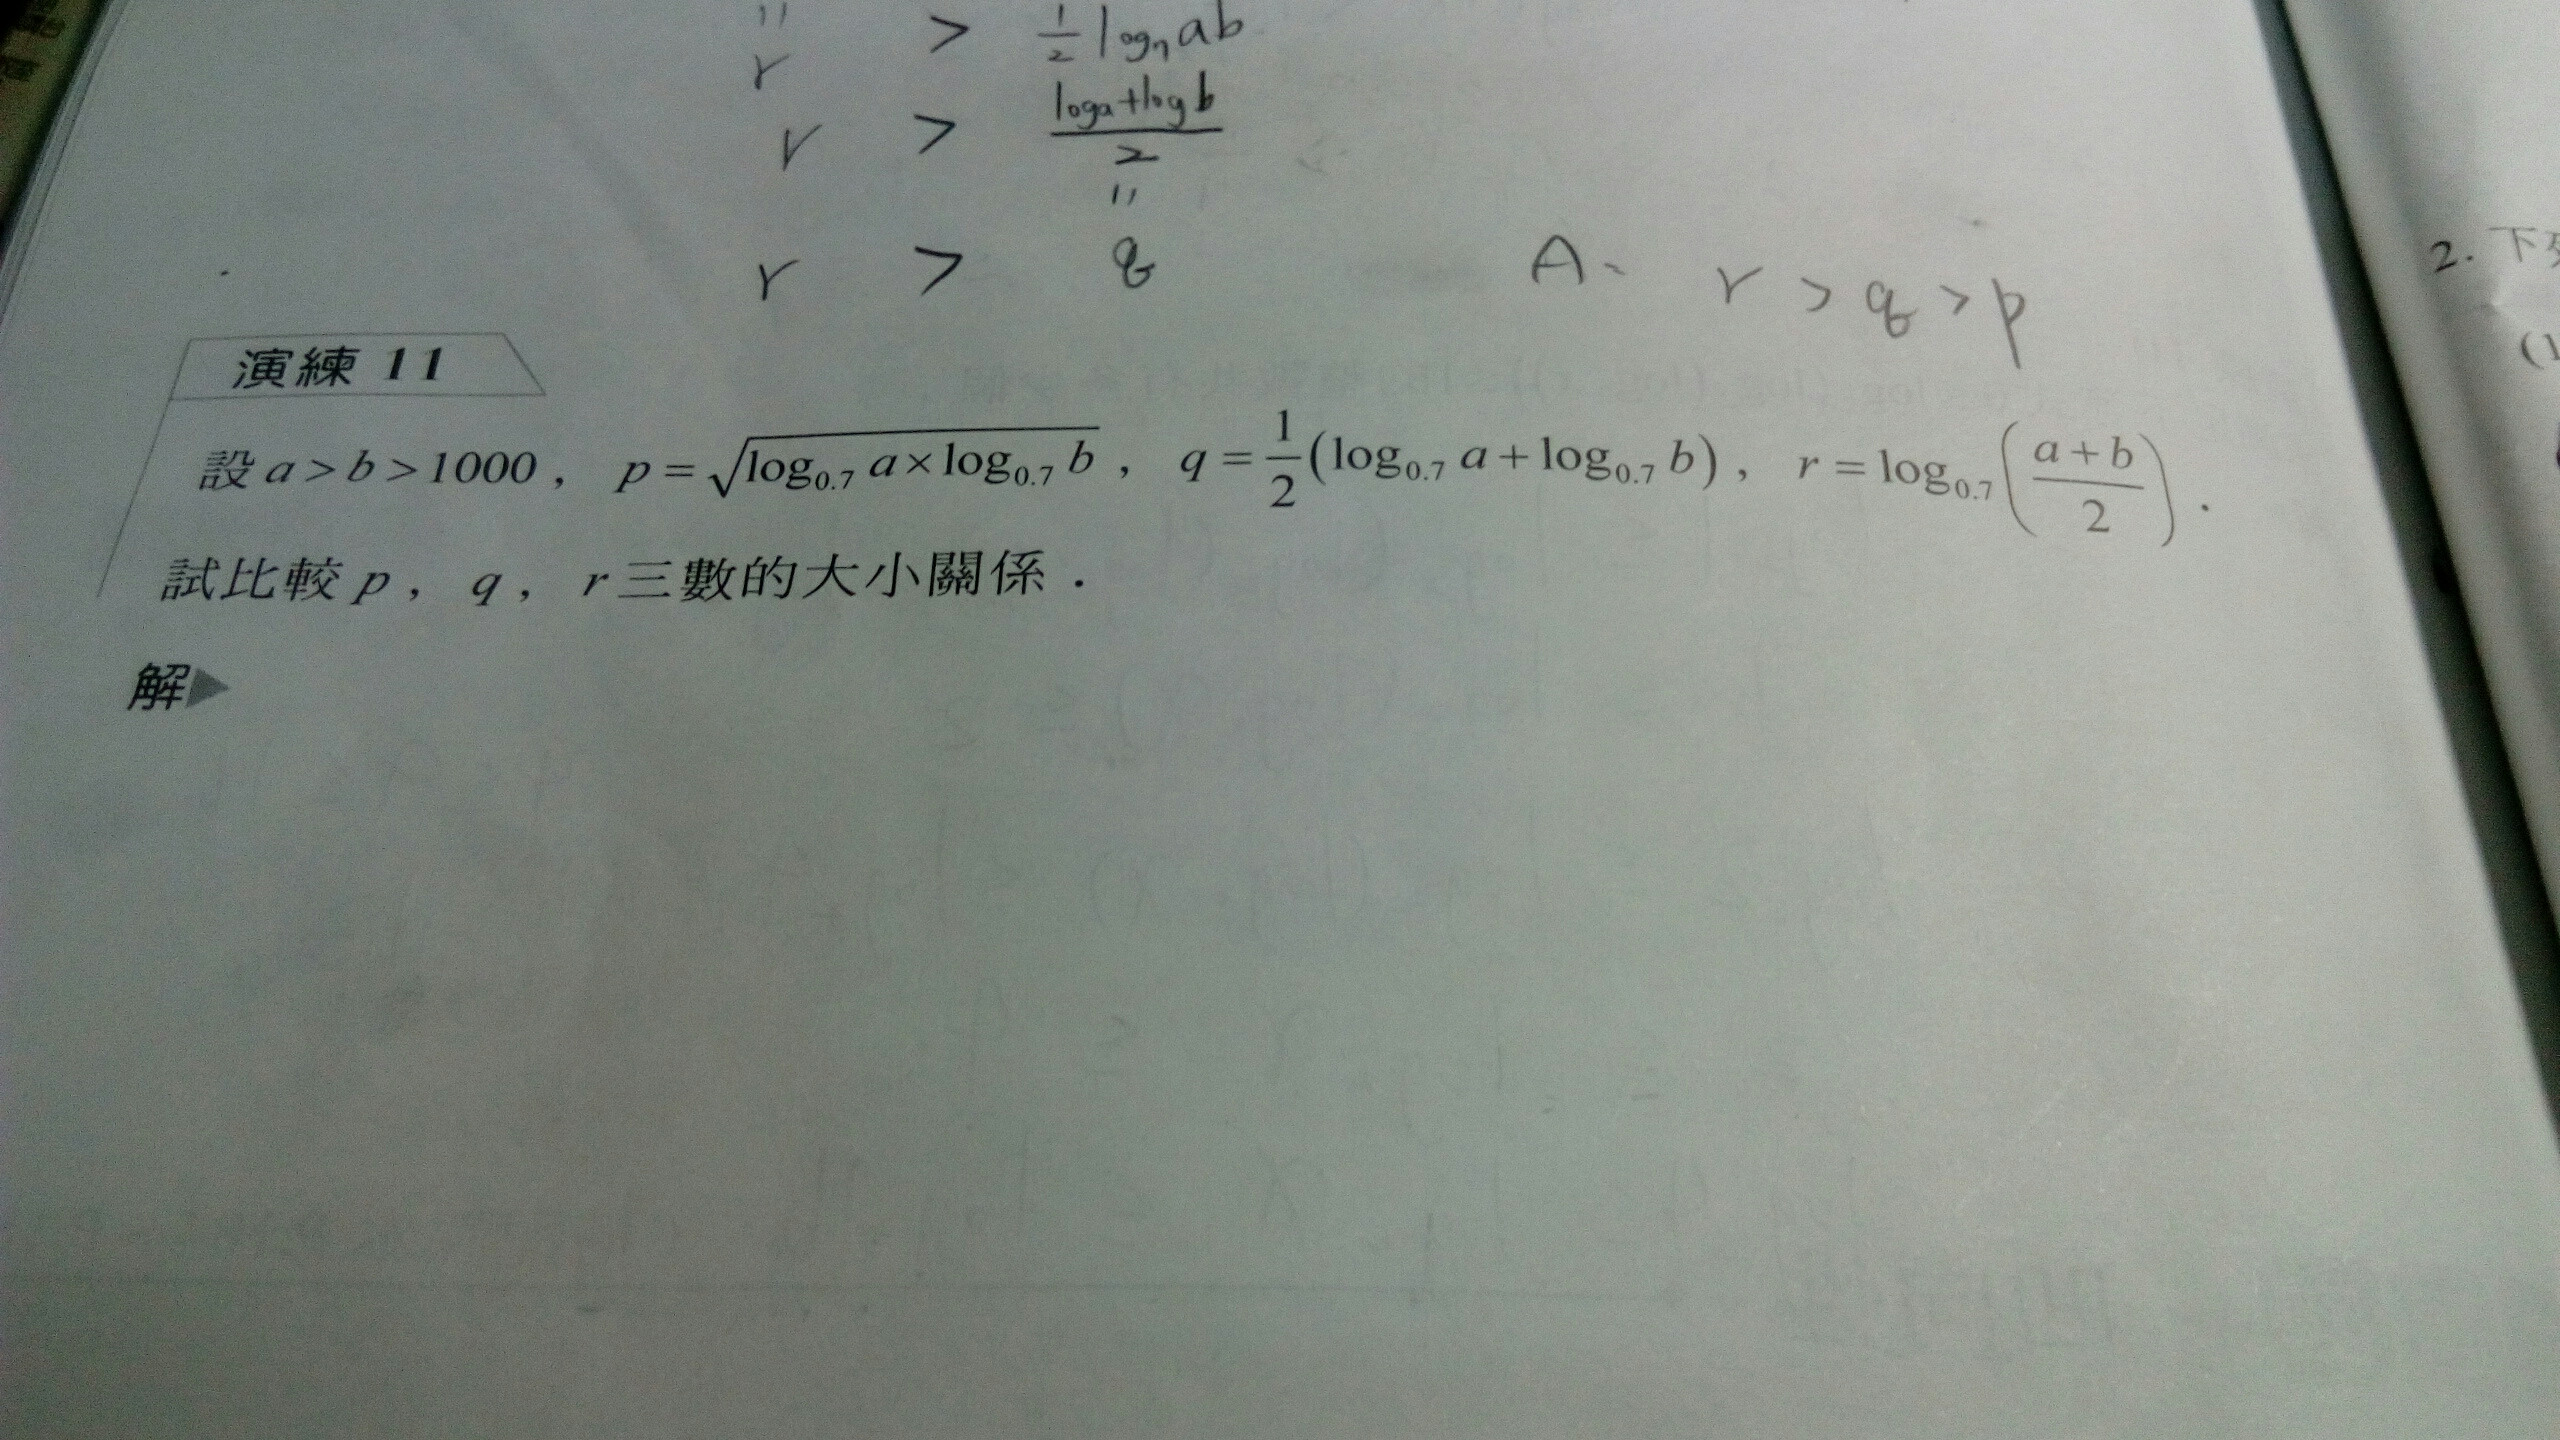 " > 1/2 log₇ ab
r
r > (loga+logb)/2
"
r > q
A. r > q > p
演練 11
設 a > b > 1000 , p = √(log₀.₇ a × log₀.₇ b) , q = 1/2 (log₀.₇ a + log₀.₇ b) , r = log₀.₇ ((a+b)/2) .
試比較 p , q , r 三數的大小關係 .
解▶
2. 下列
(1